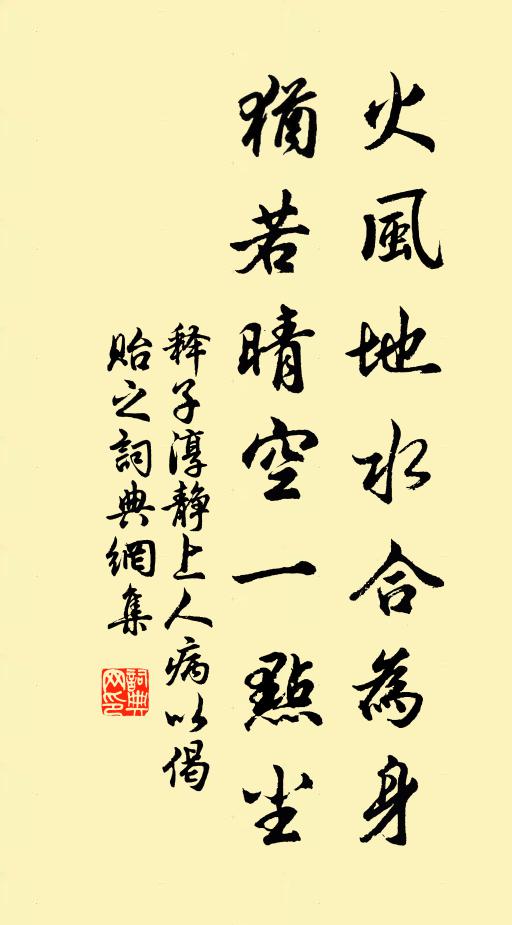 火風地水合為身
猶若晴空一點尘
释子淳静上人病以偈
贻之詞典網集
詞典网印